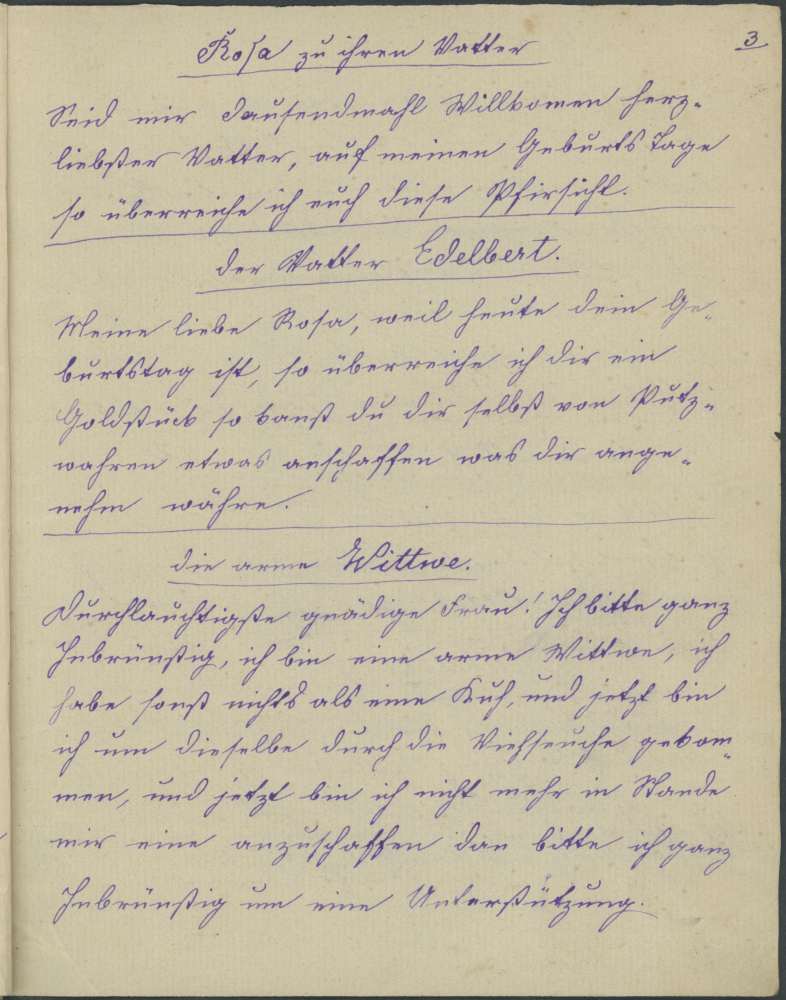 3
Rosa zu ihren Vatter
Seid mir Tausendmahl Willkomen herz-
liebster Vatter, auf meinen Geburts Tage
so überreiche ich euch diese Pfirsicht.
der Vatter Edelbert.
Meine liebe Rosa, weil heute dein Ge-
burtstag ist, so überreiche ich dir ein
Goldstück so kanst du dir selbst von Putz-
wahren etwas anschaffen was dir ange-
nehm währe.
die arme Wittwe.
Durchlauchtigste gnädige Frau! Ich bitte ganz
Inbrünstig, ich bin eine arme Wittwe, ich
habe sonst nichts als eine Kuh, und jetzt bin
ich um dieselbe durch die Viehseuche gekom-
men, und jetzt bin ich nicht mehr in Stande
mir eine anzuschaffen dan bitte ich ganz
Inbrünstig um eine Unterstützung.